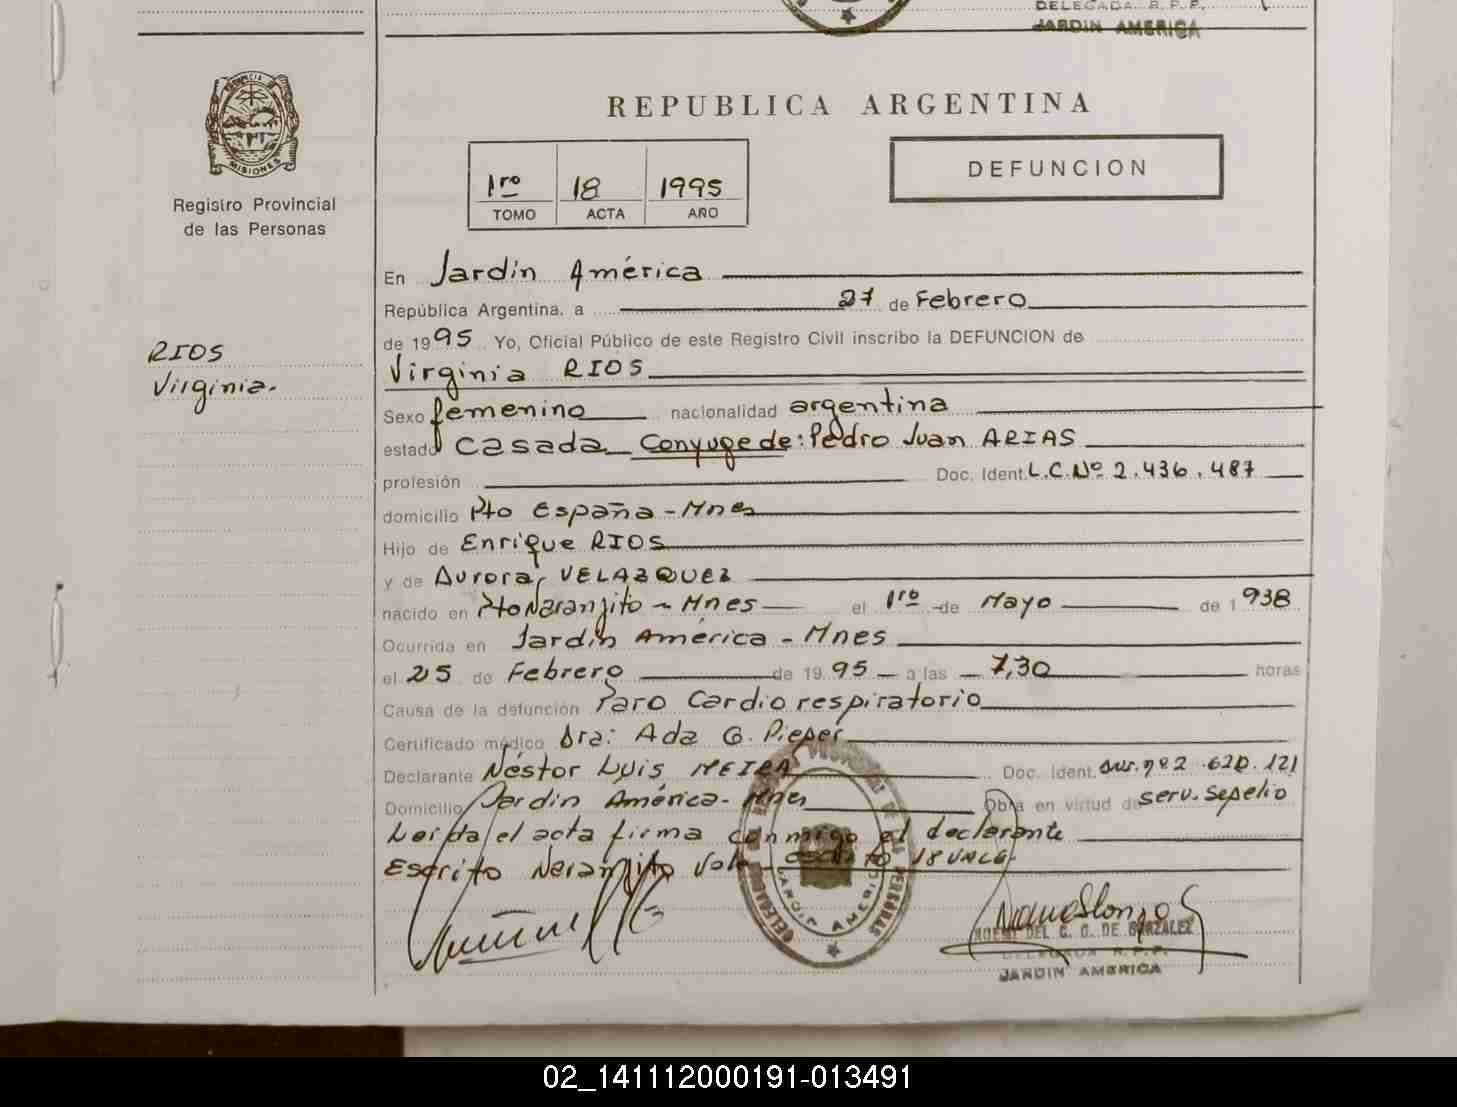 DELEGADA R.P.P.
JARDIN AMERICA
MISIONES
Registro Provincial
de las Personas
REPUBLICA ARGENTINA
1ro 18 1995
TOMO ACTA AÑO
DEFUNCION
RIOS
Virginia.
En Jardín América
República Argentina, a 27 de Febrero
de 1995 Yo, Oficial Público de este Registro Civil inscribo la DEFUNCION de
Virginia RIOS
Sexo femenino nacionalidad argentina
estado casada Conyuge de: Pedro Juan ARIAS
profesión Doc. Ident. L.C.Nº 2.436.487
domicilio Pto España - Mnes
Hijo de Enrique RIOS
y de Aurora VELAZQUEZ
nacido en Pto Naranjito - Mnes el 1ro de Mayo de 1938
Ocurrida en Jardín América - Mnes
el 25 de Febrero de 1995 a las 7,30 horas
Causa de la defunción Paro Cardio respiratorio
Certificado médico Dra: Ada G. Pieper
Declarante Néstor Luis NEIRA Doc. Ident. 2.620.121
Domicilio Jardín América - Mnes Obra en virtud de serv. Sepelio
Leída el acta firma conmigo el declarante
Escrito Naranjito Vale
JARDIN AMERICA
DEL C. G. DE GONZALEZ
DELEGADA R.P.P.
JARDIN AMERICA
02_141112000191-013491